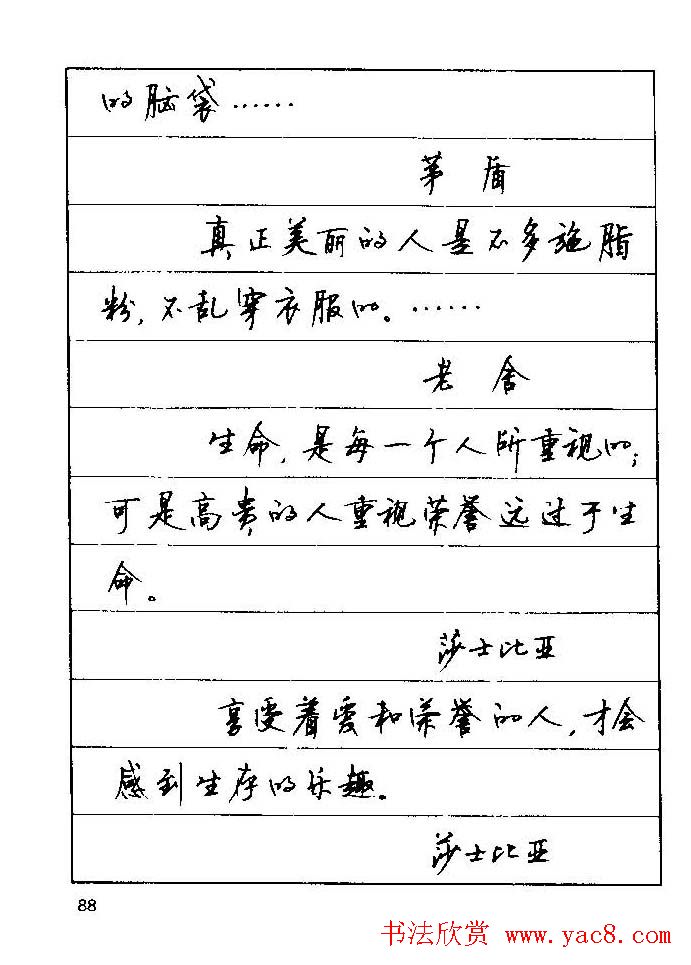 的脑袋……
茅 盾
真正美丽的人是不多施脂
粉，不乱穿衣服的。……
老 舍
生命，是每一个人所重视的；
可是高贵的人重视荣誉远过于生
命。
莎士比亚
享受着爱和荣誉的人，才会
感到生存的乐趣。
莎士比亚
88
书法欣赏 www.yac8.com